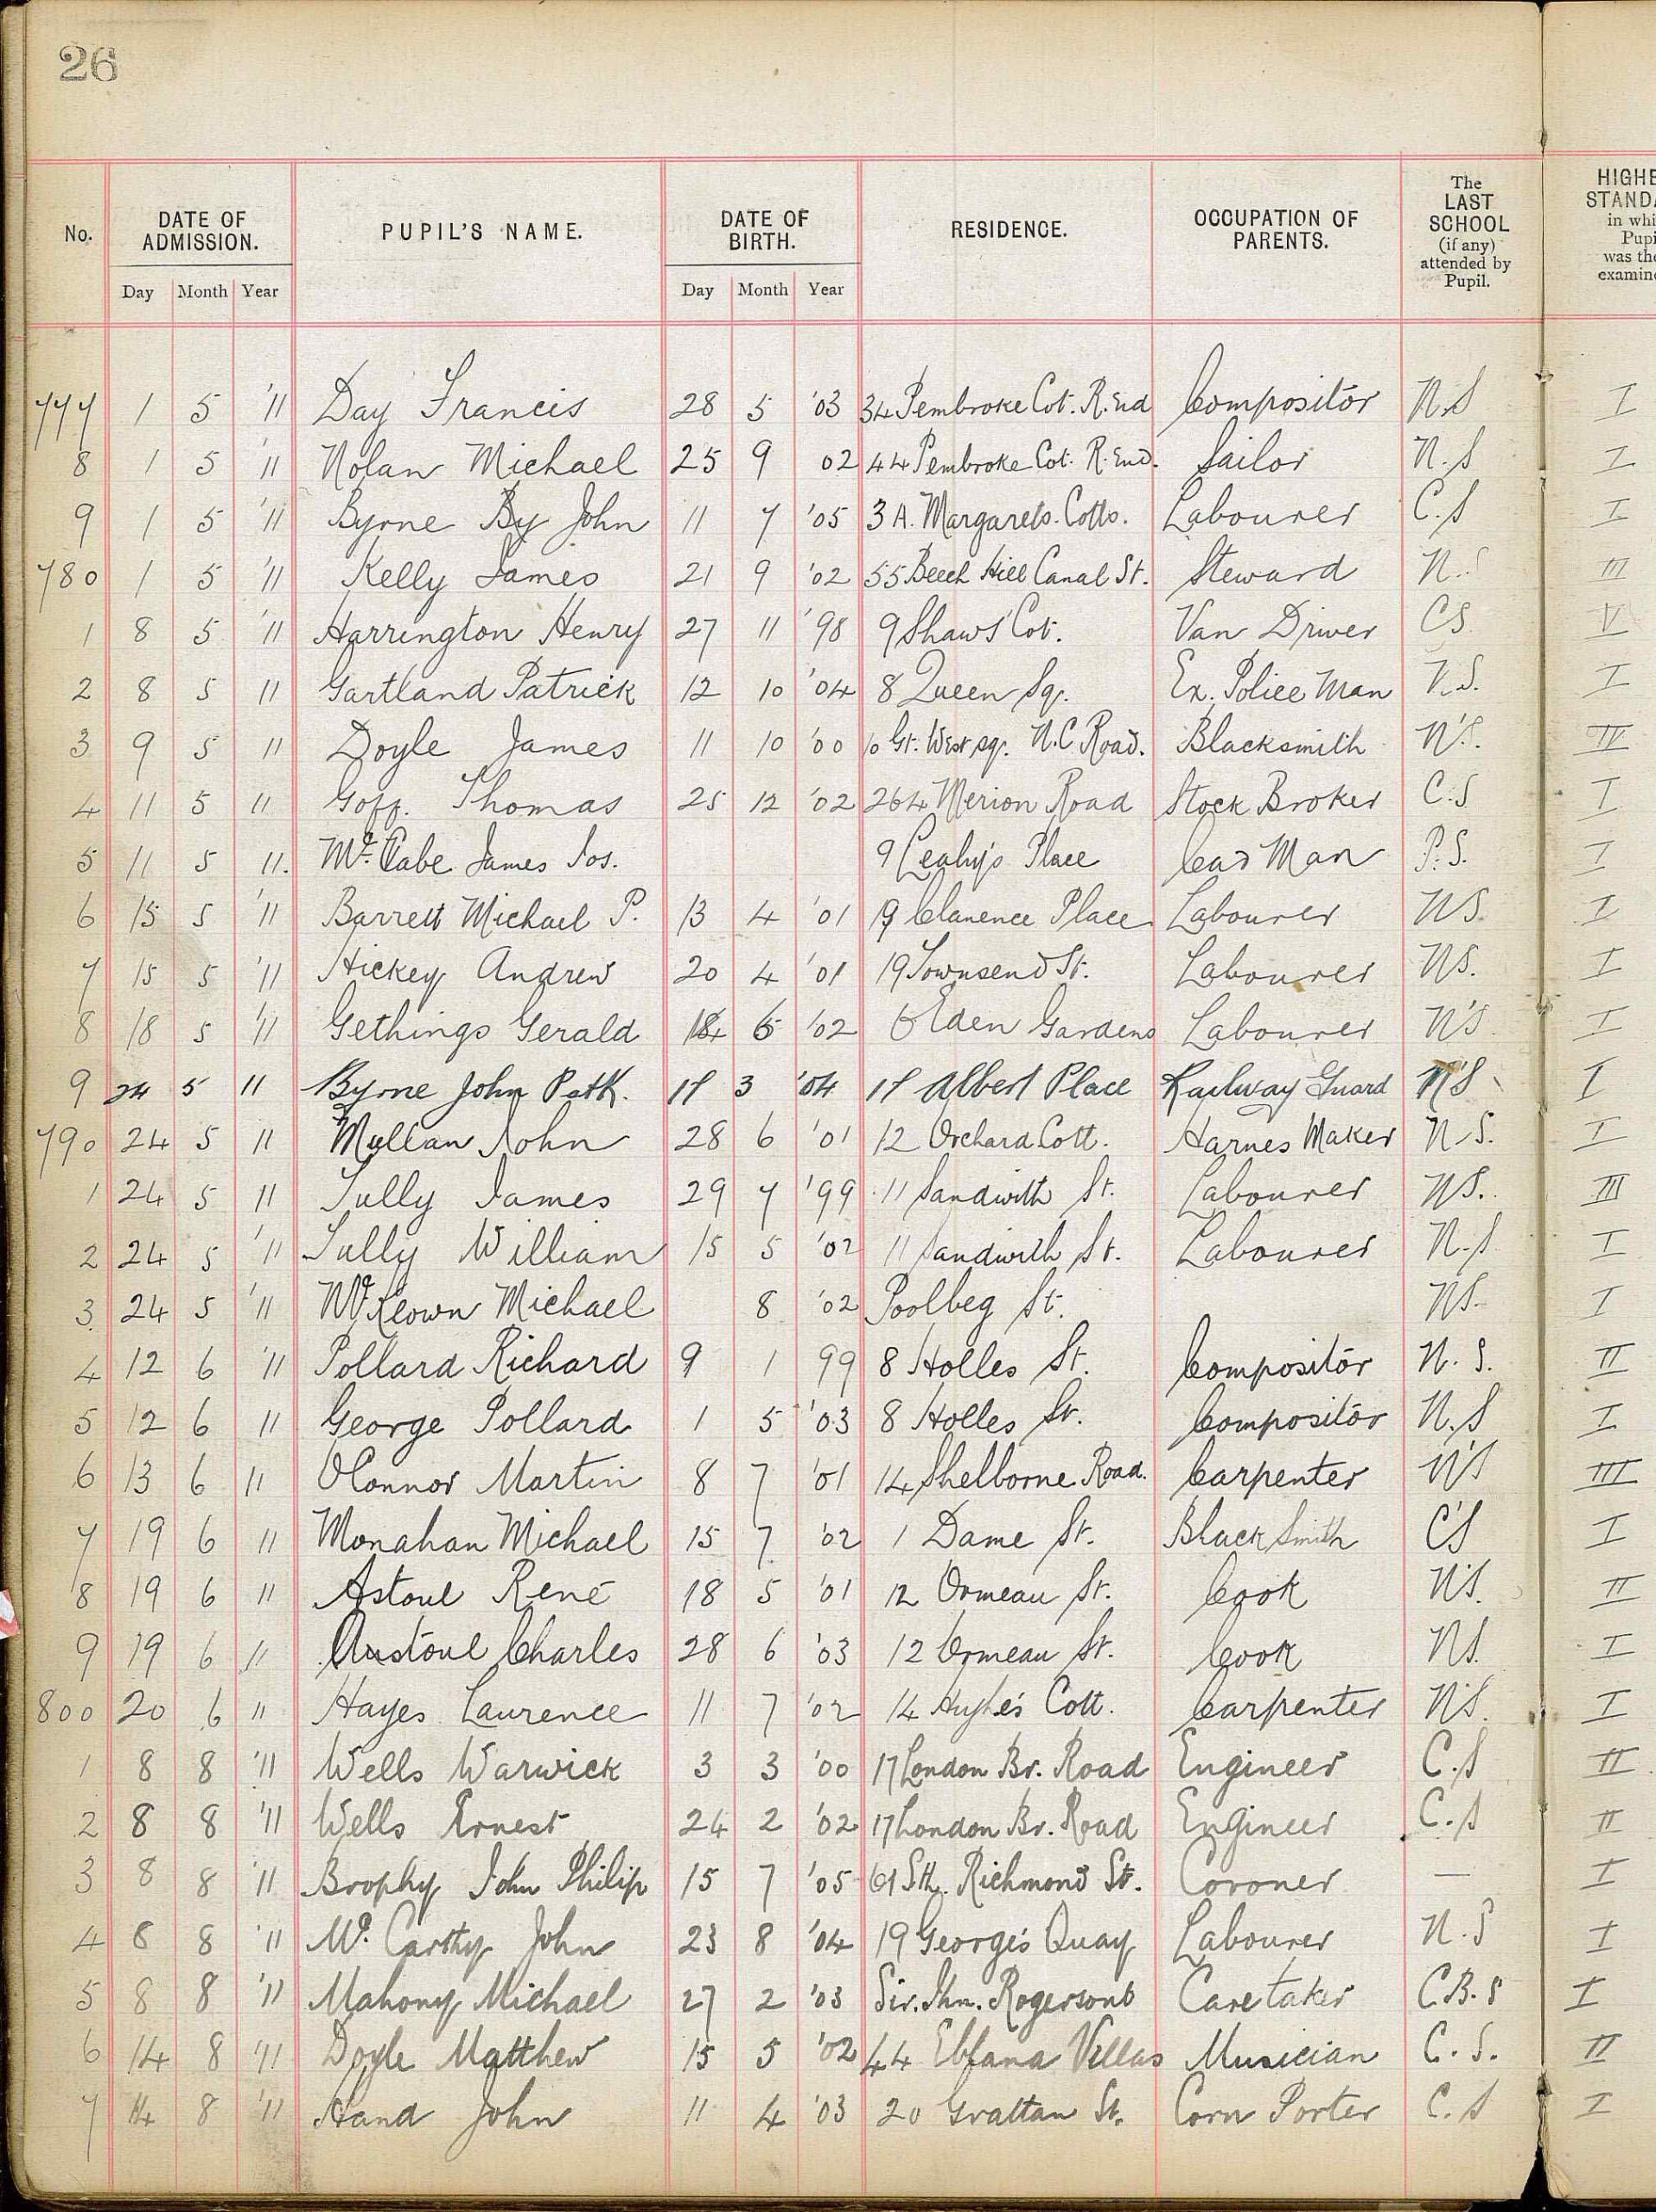 26
No. DATE OF ADMISSION. PUPIL'S NAME. DATE OF BIRTH. RESIDENCE. OCCUPATION OF PARENTS. The LAST SCHOOL (if any) attended by Pupil. HIGHE STANDA in whi Pupi was the examine
Day Month Year Day Month Year
777 1 5 '11 Day Francis 28 5 '03 34 Pembroke Cot. R. End Compositor N.S I
8 1 5 '11 Nolan Michael 25 9 02 44 Pembroke Cot. R. End. Sailor N.S I
9 1 5 '11 Byrne By John 11 7 '05 3A. Margarets. Cotts. Labourer C.S I
780 1 5 '11 Kelly James 21 9 '02 55 Beech Hill Canal St. Steward N.S III
1 8 5 '11 Harrington Henry 27 11 '98 9 Shaws' Cot. Van Driver CS V
2 8 5 11 Gartland Patrick 12 10 '04 8 Queen Sq. Ex. Police Man N.S. I
3 9 5 11 Doyle James 11 10 '00 10 Gt. West sq. N.C Road. Blacksmith N.S. IV
4 11 5 11 Goff. Thomas 25 12 '02 264 Merion Road Stock Broker C.S I
5 11 5 11. Mc. Cabe James Jos. 9 Leahy's Place Car Man P.S. I
6 15 5 '11 Barrett Michael P. 13 4 '01 19 Clarence Place Labourer NS. I
7 15 5 '11 Hickey Andrew 20 4 '01 19 Townsend St. Labourer NS. I
8 18 5 '11 Gethings Gerald 5 '02 6 Elden Gardens Labourer N'S I
9 24 5 11 Byrne John Patk. 17 3 '04 17 Albert Place Railway Guard N'S I
790 24 5 11 Mullan John 28 6 '01 12 Orchard Cott. Harnes Maker N.S. I
1 24 5 11 Tully James 29 7 '99 11 Sandwith St. Labourer NS. III
2 24 5 '11 Tully William 15 5 '02 11 Sandwith St. Labourer N.S I
3 24 5 '11 Mc Keown Michael 8 '02 Poolbeg St. NS. I
4 12 6 '11 Pollard Richard 9 1 99 8 Holles St. Compositor N.S. II
5 12 6 11 George Pollard 1 5 '03 8 Holles St. Compositor N.S I
6 13 6 11 OConnor Martin 8 7 '01 14 Shelborne Road. Carpenter N'S III
7 19 6 11 Monahan Michael 15 7 '02 1 Dame St. Black Smith C'S I
8 19 6 11 Astoul René 18 5 '01 12 Ormeau St. Cook N'S. II
9 19 6 11 Austoul Charles 28 6 '03 12 Ormeau St. Cook NS. I
800 20 6 11 Hayes Laurence 11 7 '02 14 Hughe's Cott. Carpenter N'S. I
1 8 8 '11 Wells Warwick 3 3 '00 17 London Br. Road Engineer C.S II
2 8 8 '11 Wells Ernest 24 2 '02 17 London Br. Road Engineer C.S II
3 8 8 '11 Brophy John Philip 15 7 '05 61 Sth. Richmond St. Coroner — I
4 8 8 '11 Mc. Carthy John 23 8 '04 19 George's Quay Labourer N.S I
5 8 8 '11 Mahony Michael 27 2 '03 Sir. Jhn. Rogersons Caretaker C.B.S I
6 14 8 '11 Doyle Matthew 15 5 '02 44 Eblana Villas Musician C.S. II
7 14 8 '11 Hand John 11 4 '03 20 Grattan St. Corn Porter C.S I